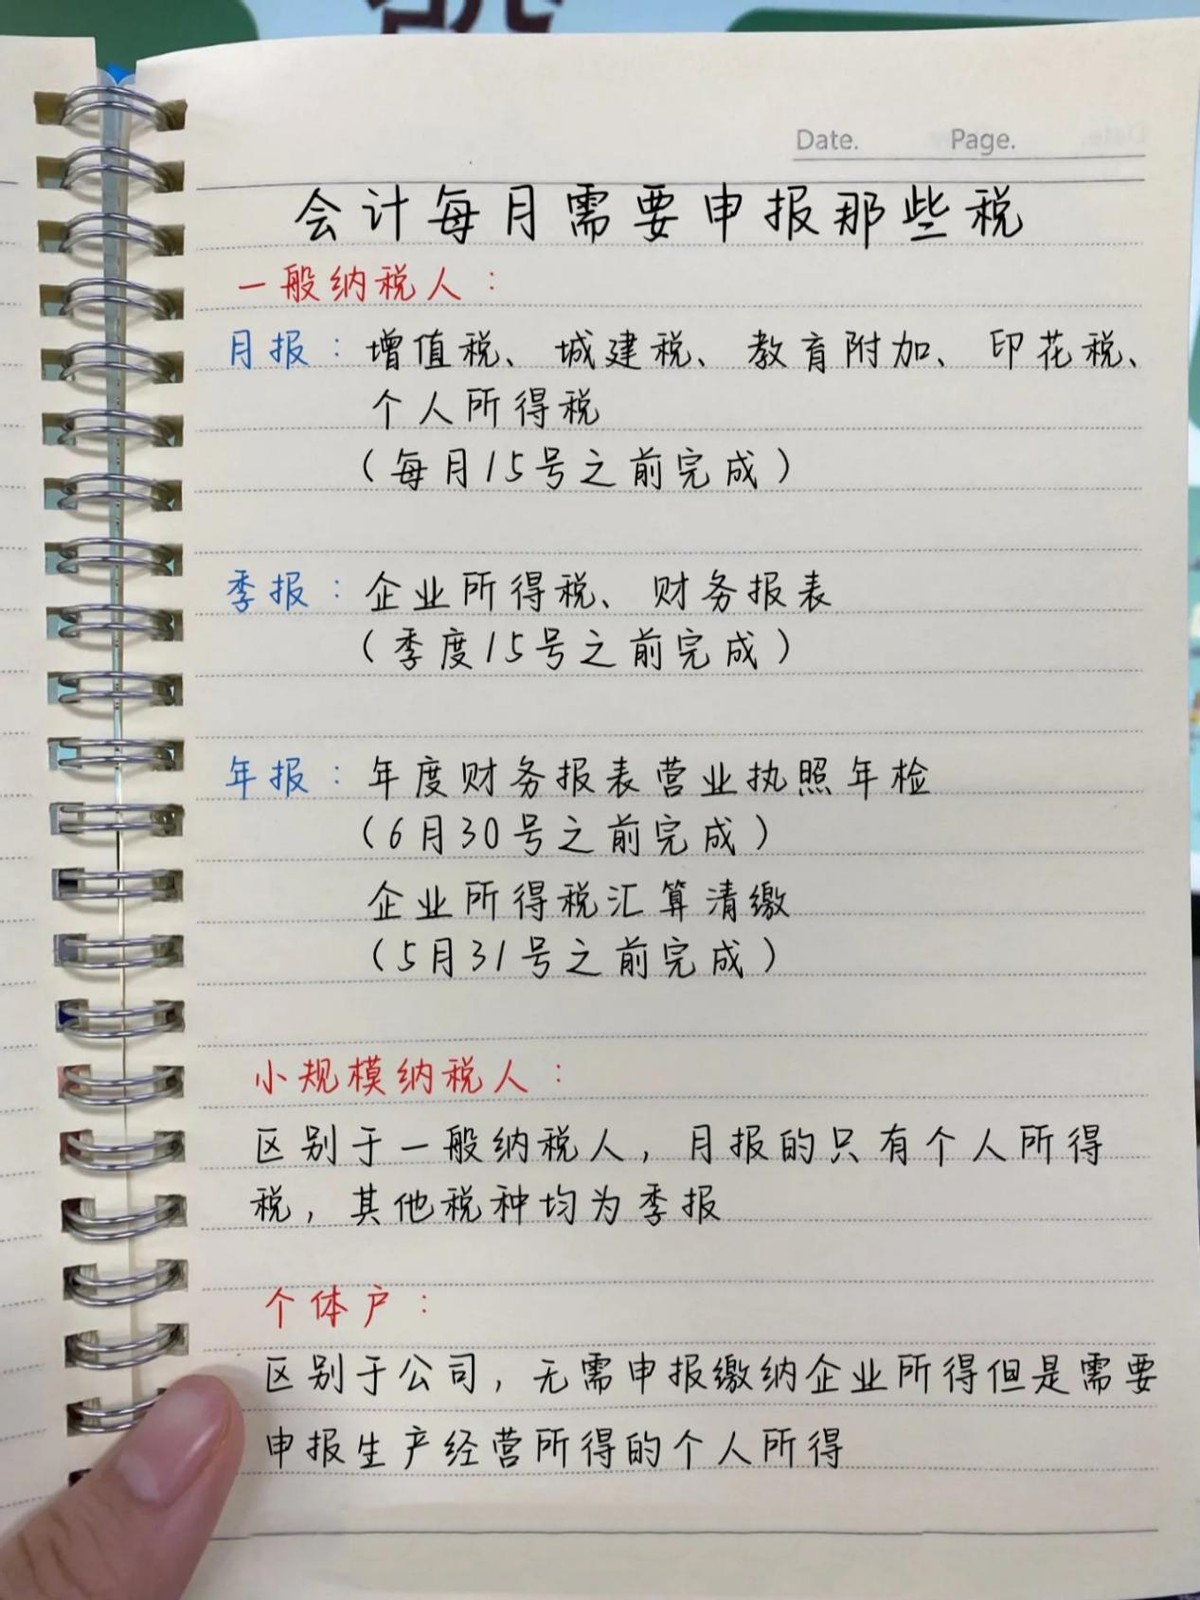 Date. Page.
会计每月需要申报那些税
一般纳税人：
月报：增值税、城建税、教育附加、印花税、
个人所得税
（每月15号之前完成）
季报：企业所得税、财务报表
（季度15号之前完成）
年报：年度财务报表营业执照年检
（6月30号之前完成）
企业所得税汇算清缴
（5月31号之前完成）
小规模纳税人：
区别于一般纳税人，月报的只有个人所得
税，其他税种均为季报
个体户：
区别于公司，无需申报缴纳企业所得但是需要
申报生产经营所得的个人所得